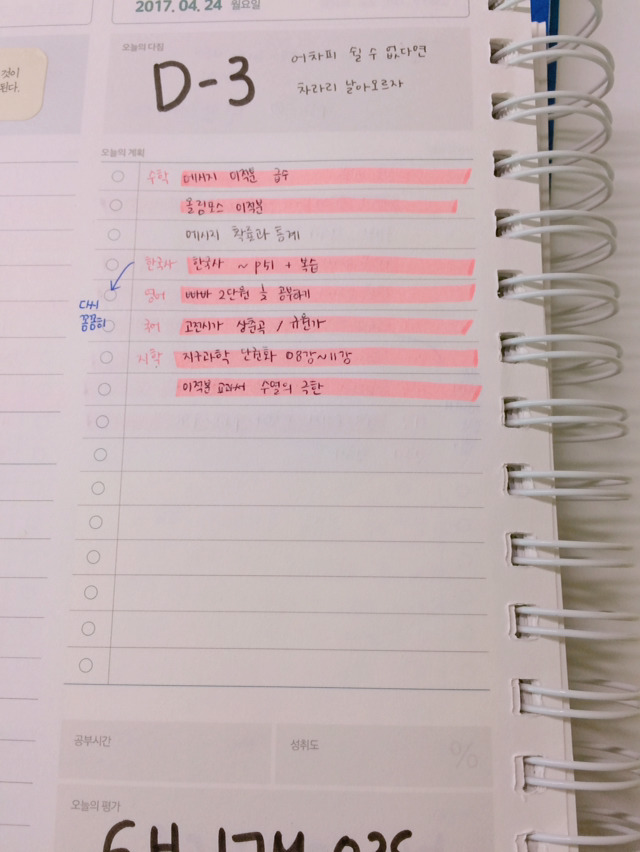 2017. 04. 24 월요일
것이
된다.
오늘의 다짐
D-3
어차피 쉴 수 없다면
차라리 날아오르자
오늘의 계획
수학 메시지 이적분 급수
올림포스 이적분
메시지 확률과 통계
한국사 한국사 ~ p51 + 복습
영어 빠바 2단원 공부하기
다시
꼼꼼히
국어 고전시가 상춘곡 / 규원가
지학 지구과학 08강~11강
이적분 교과서 수열의 극한
공부시간
성취도
%
오늘의 평가
6H 17M 02S